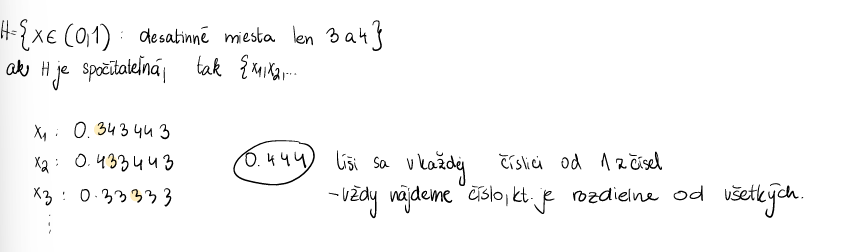 H={x∈(0,1) : desatinné miesta len 3 a 4}
ak H je spočítateľná, tak {x₁,x₂,...
x₁ : 0.343443
x₂ : 0.433443 0.444 líši sa v každej číslici od 1 z čísel
x₃ : 0.33333 -vždy nájdeme číslo, kt. je rozdielne od všetkých.
⋮